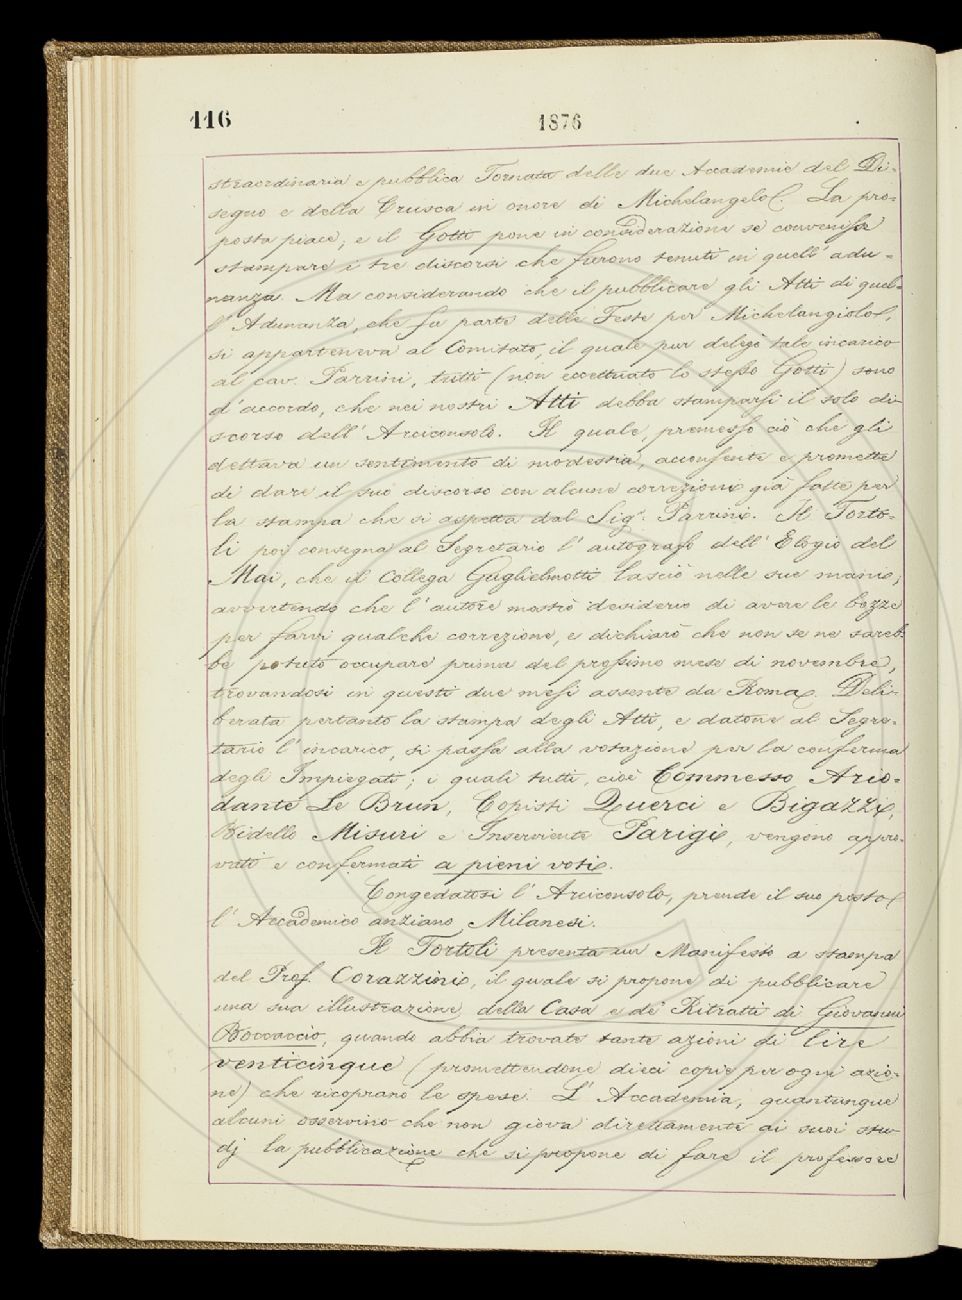 116
1876
straordinaria e pubblica Tornata delle due Accademie del Di-
segno e della Crusca in onore di Michelangelo. La pro-
posta piace; e il Gotti pone in considerazione se convenisse
stampare i tre discorsi che furono tenuti in quell'adu-
nanza. Ma considerando che il pubblicare gli Atti di quel-
l'Adunanza, che fu parte delle Feste per Michelangiolo,
si apparteneva al Comitato, il quale pur delegò tale incarico
al cav. Parrini, tutti (non eccettuato lo stesso Gotti) sono
d'accordo, che nei nostri Atti debba stamparsi il solo di-
scorso dell'Arciconsolo. Il quale, premesso ciò che gli
dettava un sentimento di modestia, acconsente e promette
di dare il suo discorso con alcune correzioni già fatte per
la stampa che si aspetta dal Sigr. Parrini. Il Torto-
li poi consegna al Segretario l'autografo dell'Elogio del
Mai, che il Collega Guglielmotti lasciò nelle sue mani;
avvertendo che l'autore mostrò desiderio di avere le bozze
per farvi qualche correzione, e dichiarò che non se ne sareb-
be potuto occupare prima del prossimo mese di novembre,
trovandosi in questi due mesi assente da Roma. Deli-
berata pertanto la stampa degli Atti, e datone al Segre-
tario l'incarico, si passa alla votazione per la conferma
degli Impiegati; i quali tutti, cioè Commesso Ario-
dante Le Brun, Copisti Querci e Bigazzi,
Bidello Misuri e Inserviente Parigi, vengono appro-
vati e confermati a pieni voti.
Congedatosi l'Arciconsolo, prende il suo posto
l'Accademico anziano Milanesi.
Il Tortoli presenta un Manifesto a stampa
del Prof. Corazzini, il quale si propone di pubblicare
una sua illustrazione della Casa e de' Ritratti di Giovanni
Boccaccio, quando abbia trovate tante azioni di lire
venticinque (promettendone dieci copie per ogni azio-
ne) che ricoprano le spese. L'Accademia, quantunque
alcuni osservino che non giova direttamente ai suoi stu-
dj la pubblicazione che si propone di fare il professore